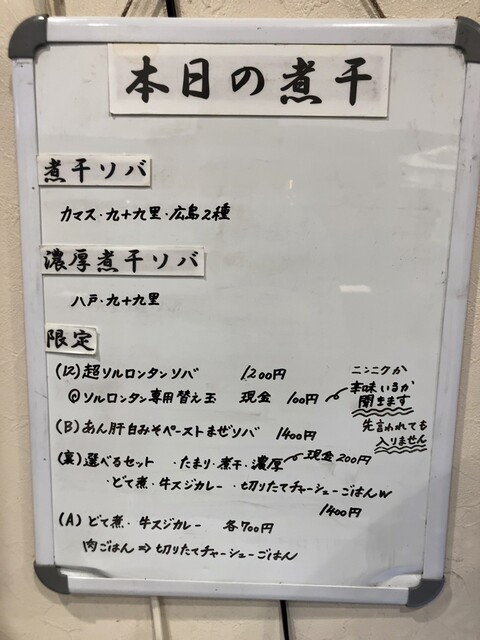 本日の煮干
煮干ソバ
カマス・九十九里・広島2種
濃厚煮干ソバ
八戸・九十九里
限定
(12)超ソルロンタンソバ 1200円
@ソルロンタン専用替え玉 現金 100円
ニンニクか
辛味いるか
聞きます
先言われても
入りません
(B)あん肝白みそペーストまぜソバ 1400円
(裏)選べるセット ・たまり・煮干・濃厚 現金200円
・どて煮・牛スジカレー ・切りたてチャーシューごはんw
1400円
(A)どて煮・牛スジカレー 各700円
肉ごはん⇒切りたてチャーシューごはん